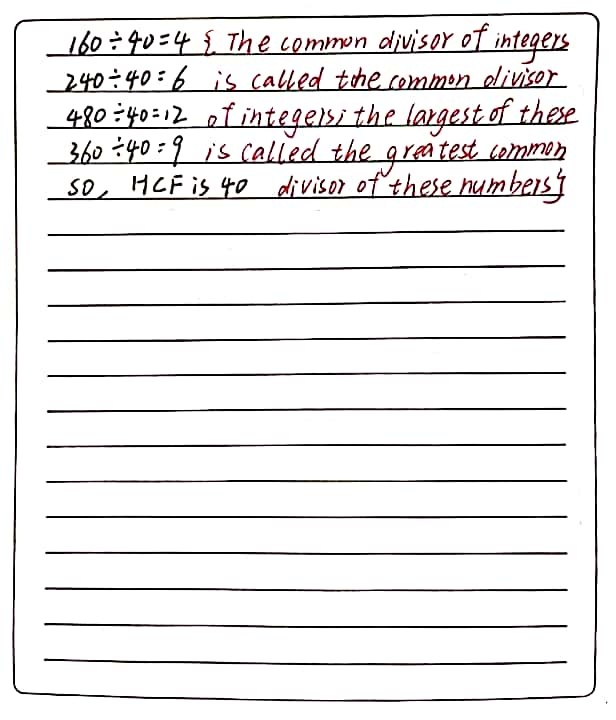 160÷40=4 { The common divisor of integers
240÷40=6 is called the common divisor
480÷40=12 of integers; the largest of these
360÷40=9 is called the greatest common
so, HCF is 40 divisor of these numbers}